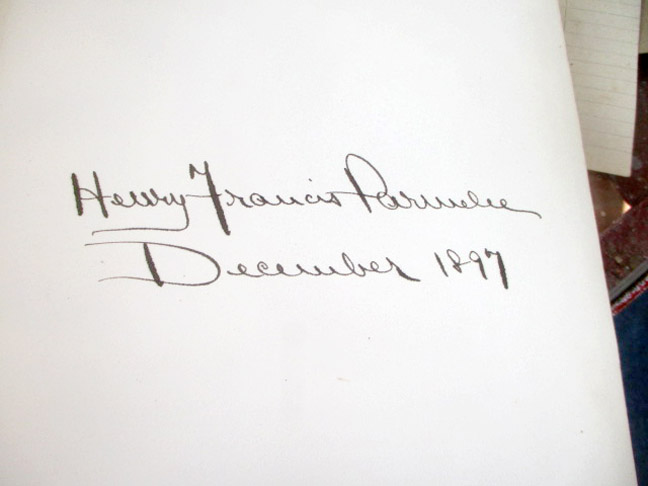 Henry Francis Parmelee
December 1897